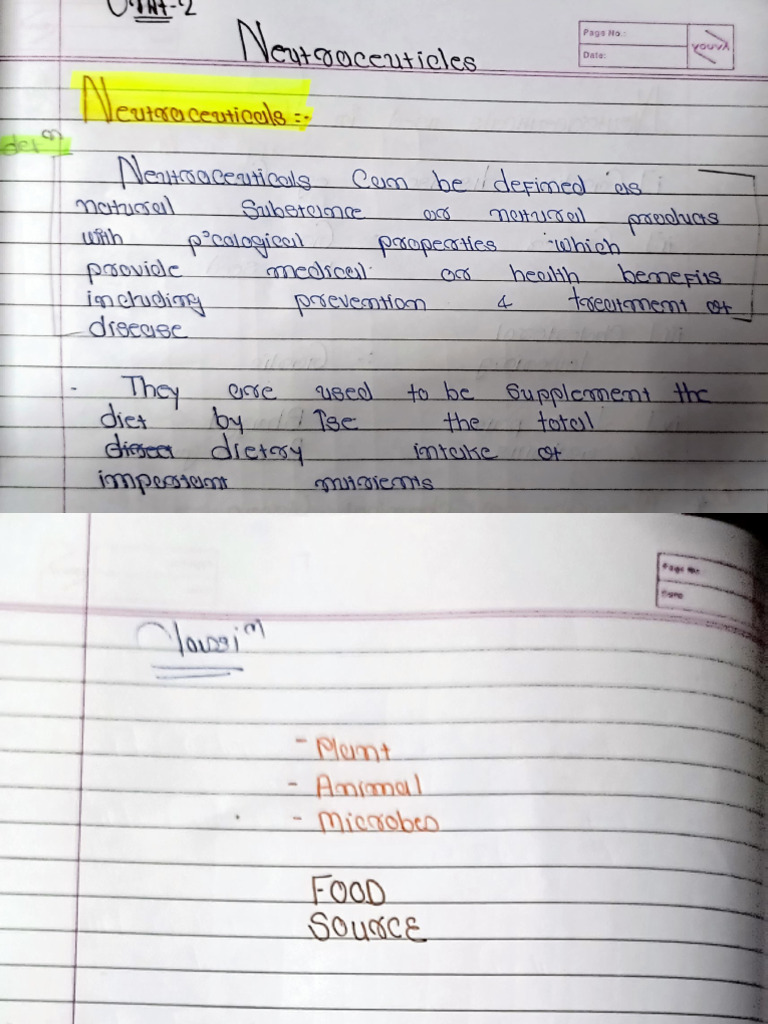 Unit-2
Neutraceuticles
Page No.:
Date:
YOUVA
Neutraceuticals :-
defⁿ
Neutraceuticals Can be defined as
natural Substance or natural products
with pᵓcological properties which
provide medical or health benefits
including prevention & treatment of
disease
- They are used to be Supplement the
diet by Tse the total
direct dietary intake of
important nutrients
Page No:
Date
Classiⁿ
- Plant
- Animal
- Microbes
FOOD
SOURCE